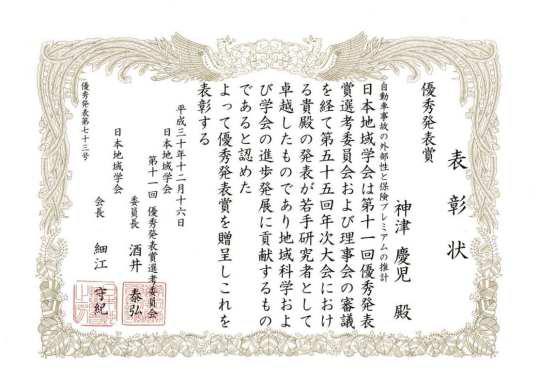 表彰状
優秀発表賞
神津 慶児 殿
自動車事故の外部性と保険プレミアムの推計
日本地域学会は第十一回優秀発表
賞選考委員会および理事会の審議
を経て第五十五回年次大会におけ
る貴殿の発表が若手研究者として
卓越したものであり地域科学およ
び学会の進歩発展に貢献するもの
であると認めた
よって優秀発表賞を贈呈しこれを
表彰する
平成三十年十二月十六日
日本地域学会
第十一回 優秀発表賞選考委員会
委員長 酒井 泰弘
日本地域学会
会長 細江 守紀
優秀発表第七十三号